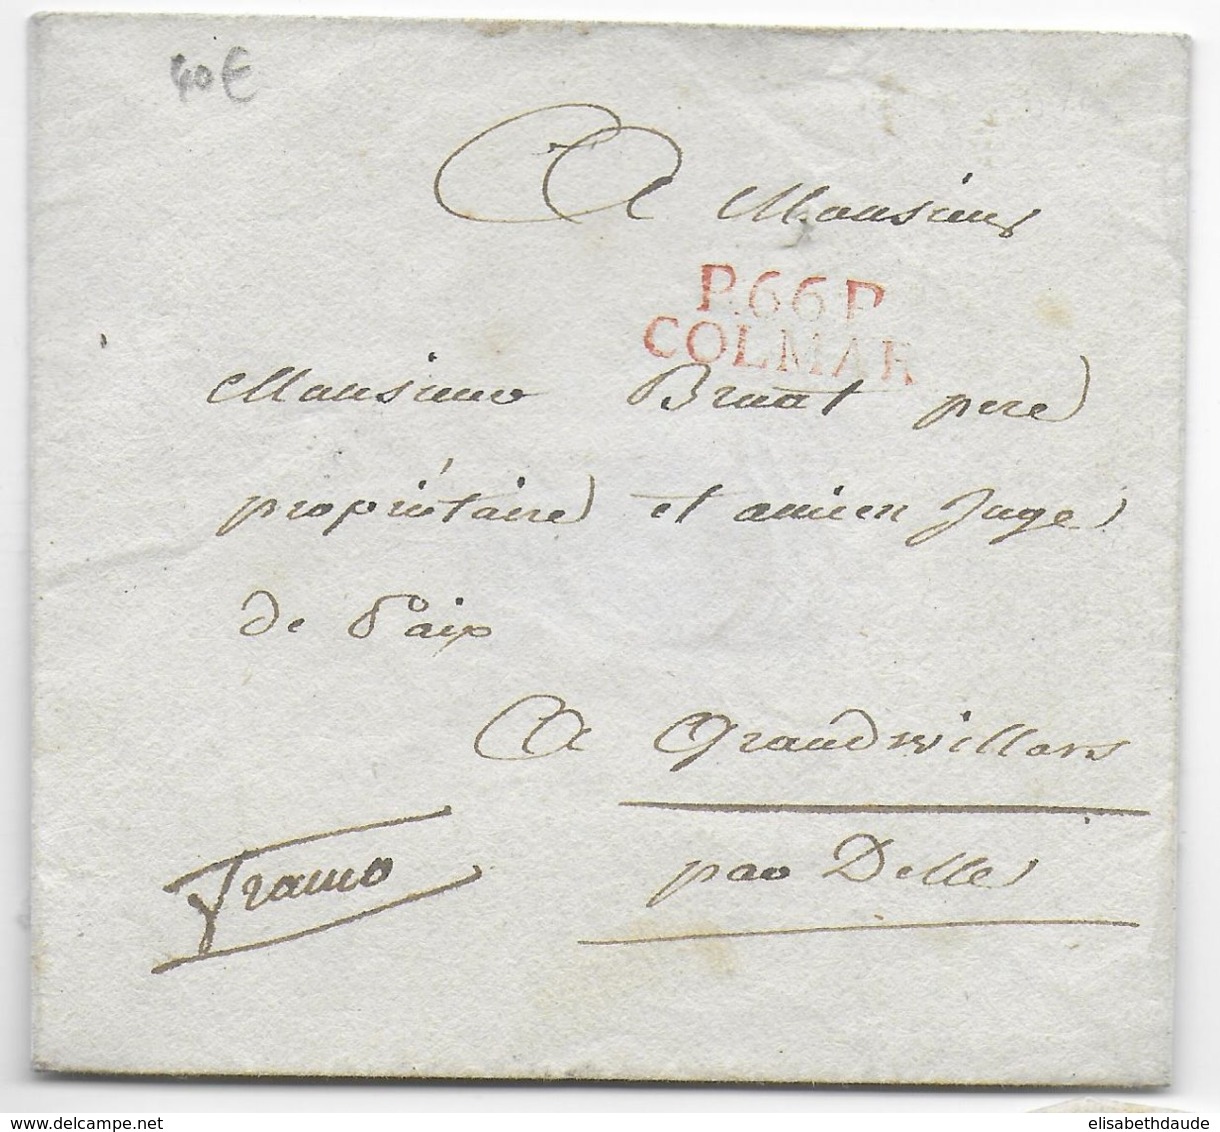 40€
A Monsieur
P.66.P.
COLMAR
Monsieur Bruat pere
propriétaire et ancien Juge
de Paix
A Grandwillars
franco
par Delle
delcampe.net
elisabethdaude